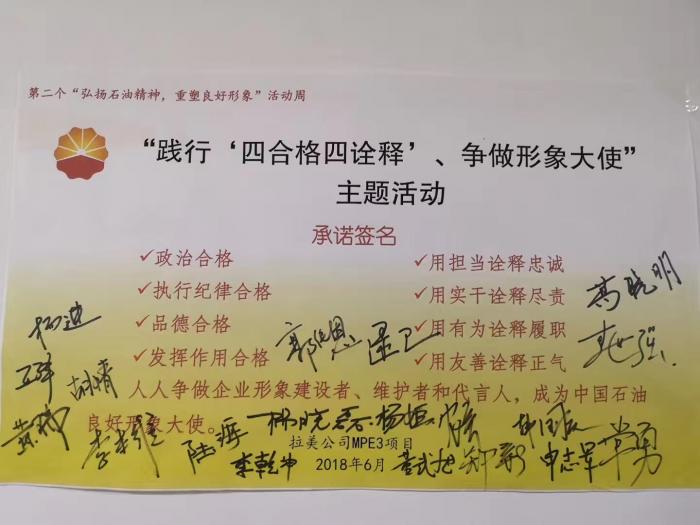 第二个“弘扬石油精神，重塑良好形象”活动周
“践行‘四合格四诠释’、争做形象大使”
主题活动
承诺签名
✓政治合格
✓执行纪律合格
✓品德合格
✓发挥作用合格
✓用担当诠释忠诚
✓用实干诠释尽责
✓用有为诠释履职
✓用友善诠释正气
高晓明
胡婧
人人争做企业形象建设者、维护者和代言人，成为中国石油
良好形象大使。
拉美公司MPE3项目
2018年6月
李乾坤
董武旭
申志军